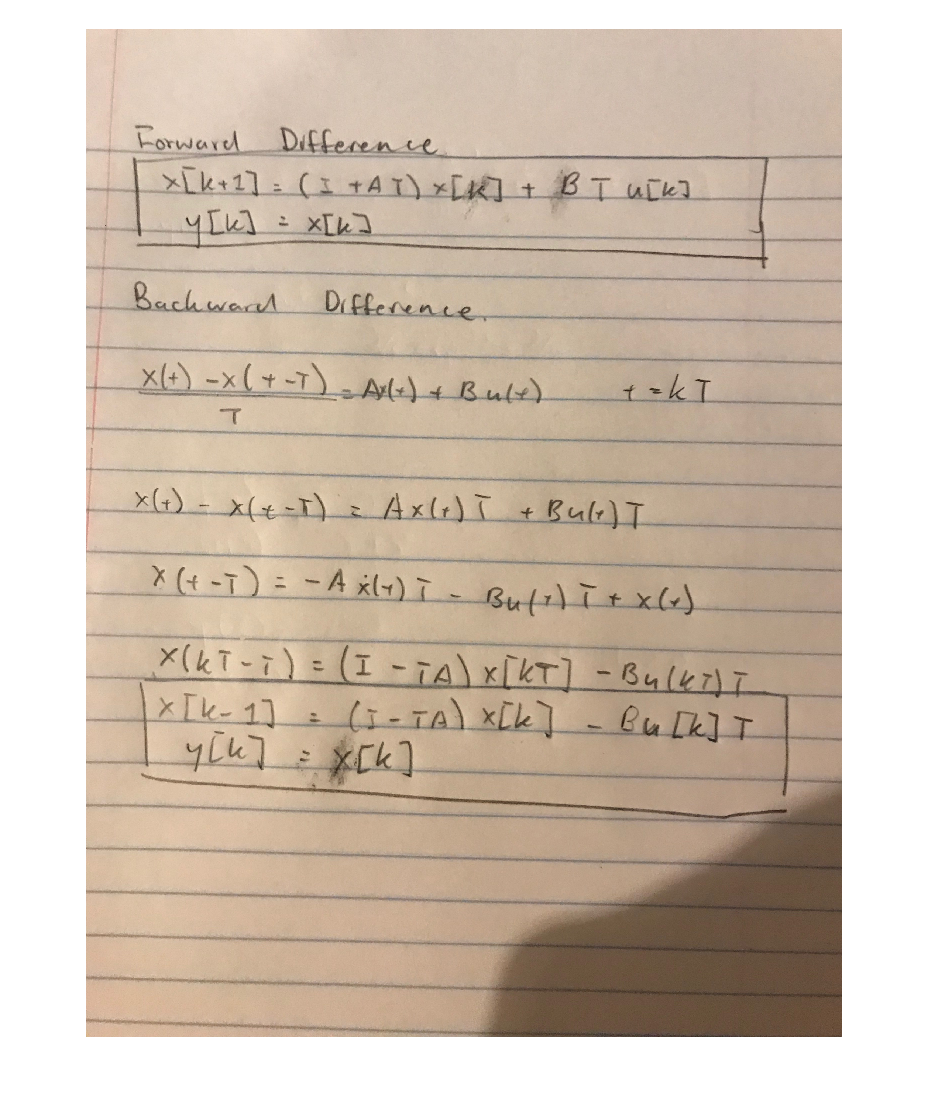 Forward Difference
x[k+1] = (I + A T) x[k] + B T u[k]
y[k] = x[k]
Backward Difference.
x(t) - x(t-T) = Ax(t) + Bu(t) t = kT
T
x(t) - x(t-T) = Ax(t) T + Bu(t) T
x(t-T) = -A ẋ(t) T - Bu(t) T + x(t)
x(kT-T) = (I - TA) x[kT] - Bu(kT) T
x[k-1] = (I - TA) x[k] - Bu[k] T
y[k] = x[k]